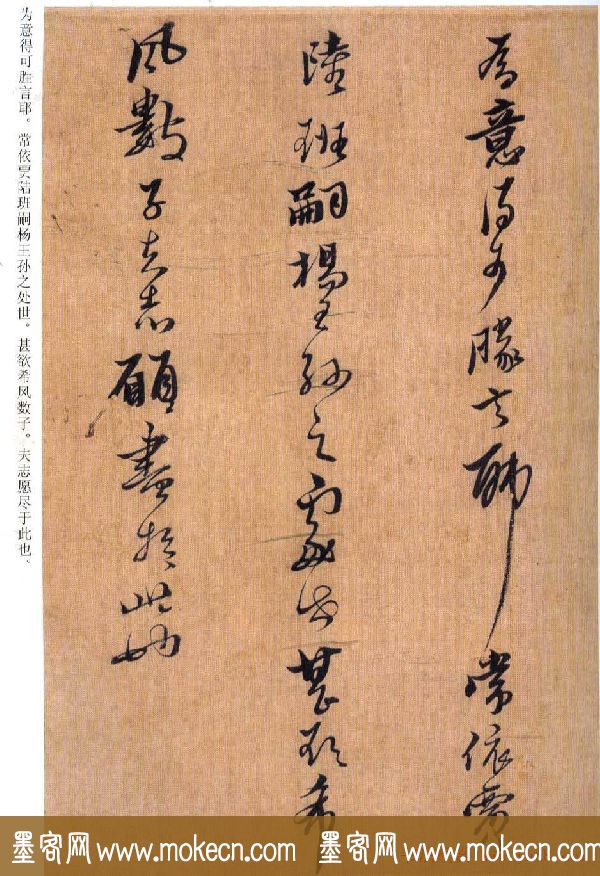 為意得可勝言耶常依賈
陸班嗣楊王孫之處世甚欲希
風數子夫志願盡於此也
为意得可胜言耶。常依贾陆班嗣杨王孙之处世。甚欲希风数子。夫志愿尽于此也。
墨客网 www.mokecn.com 墨客网 www.mokecn.com